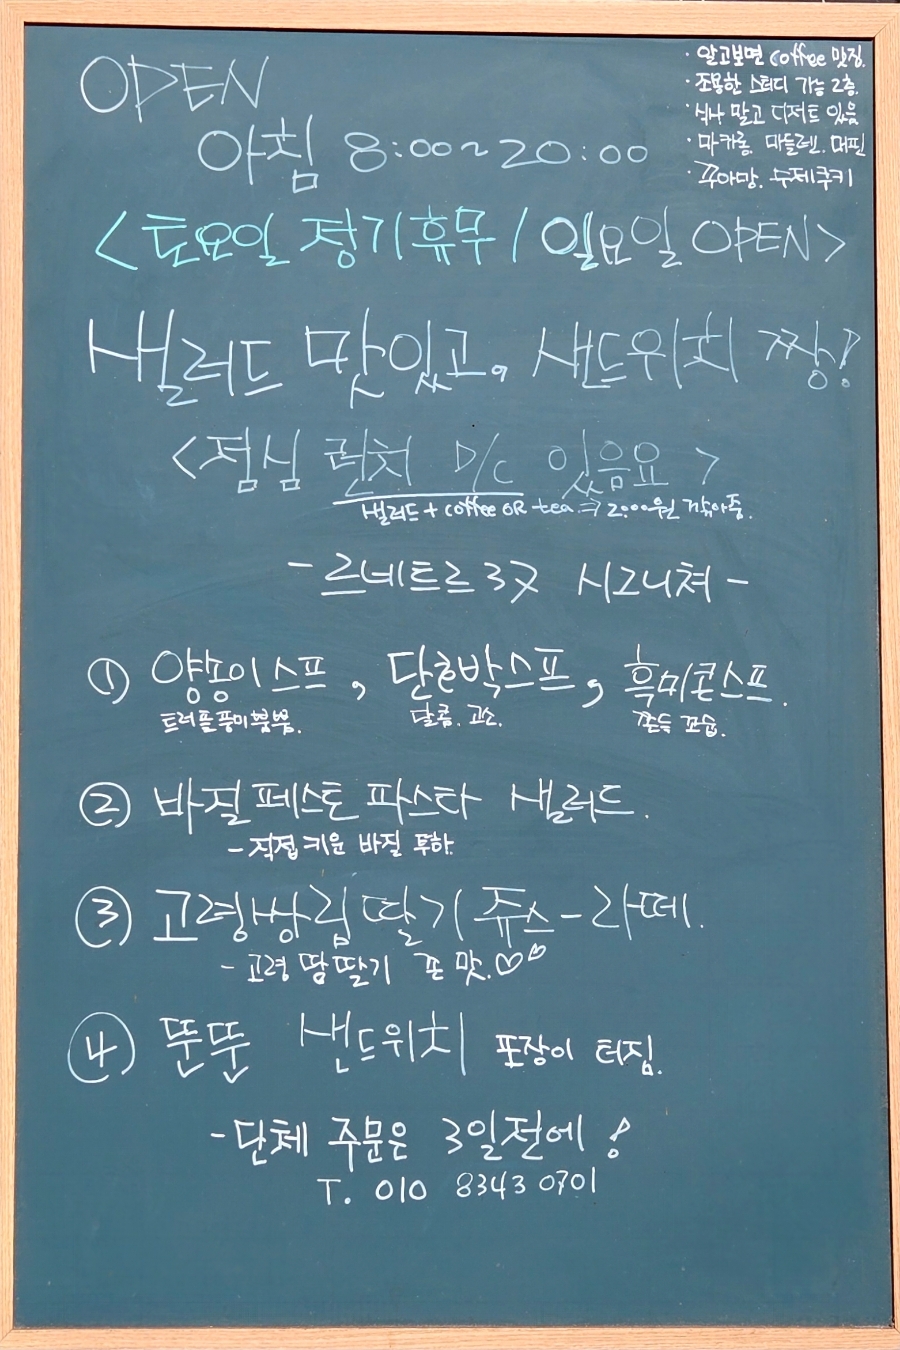 OPEN
아침 8:00~20:00
· 알고보면 coffee 맛집.
· 조용한 스터디 가능 2층.
· 식사 말고 디저트 있음
· 마카롱. 마들렌. 머핀
· 꾸아망. 수제쿠키
<토요일 정기휴무 / 일요일 OPEN>
샐러드 맛있고, 샌드위치 짱!
<점심 런치 D/C 있음요>
샐러드 + coffee OR tea ⇒ 2000원 깎아줌.
- 르네트르 3곳 시그니쳐 -
① 양송이스프, 단호박스프, 흑미콘스프.
트러플풍미뿜뿜. 달콤. 고소. 쫀득 꼬숩.
② 바질페스토 파스타 샐러드.
- 직접 키운 바질 투하.
③ 고령쌍림딸기 쥬스-라떼.
- 고령 땀딸기 존맛.♡♡
④ 뚠뚠 샌드위치 포장이 터짐.
- 단체 주문은 3일전에!
T. 010 8343 0701